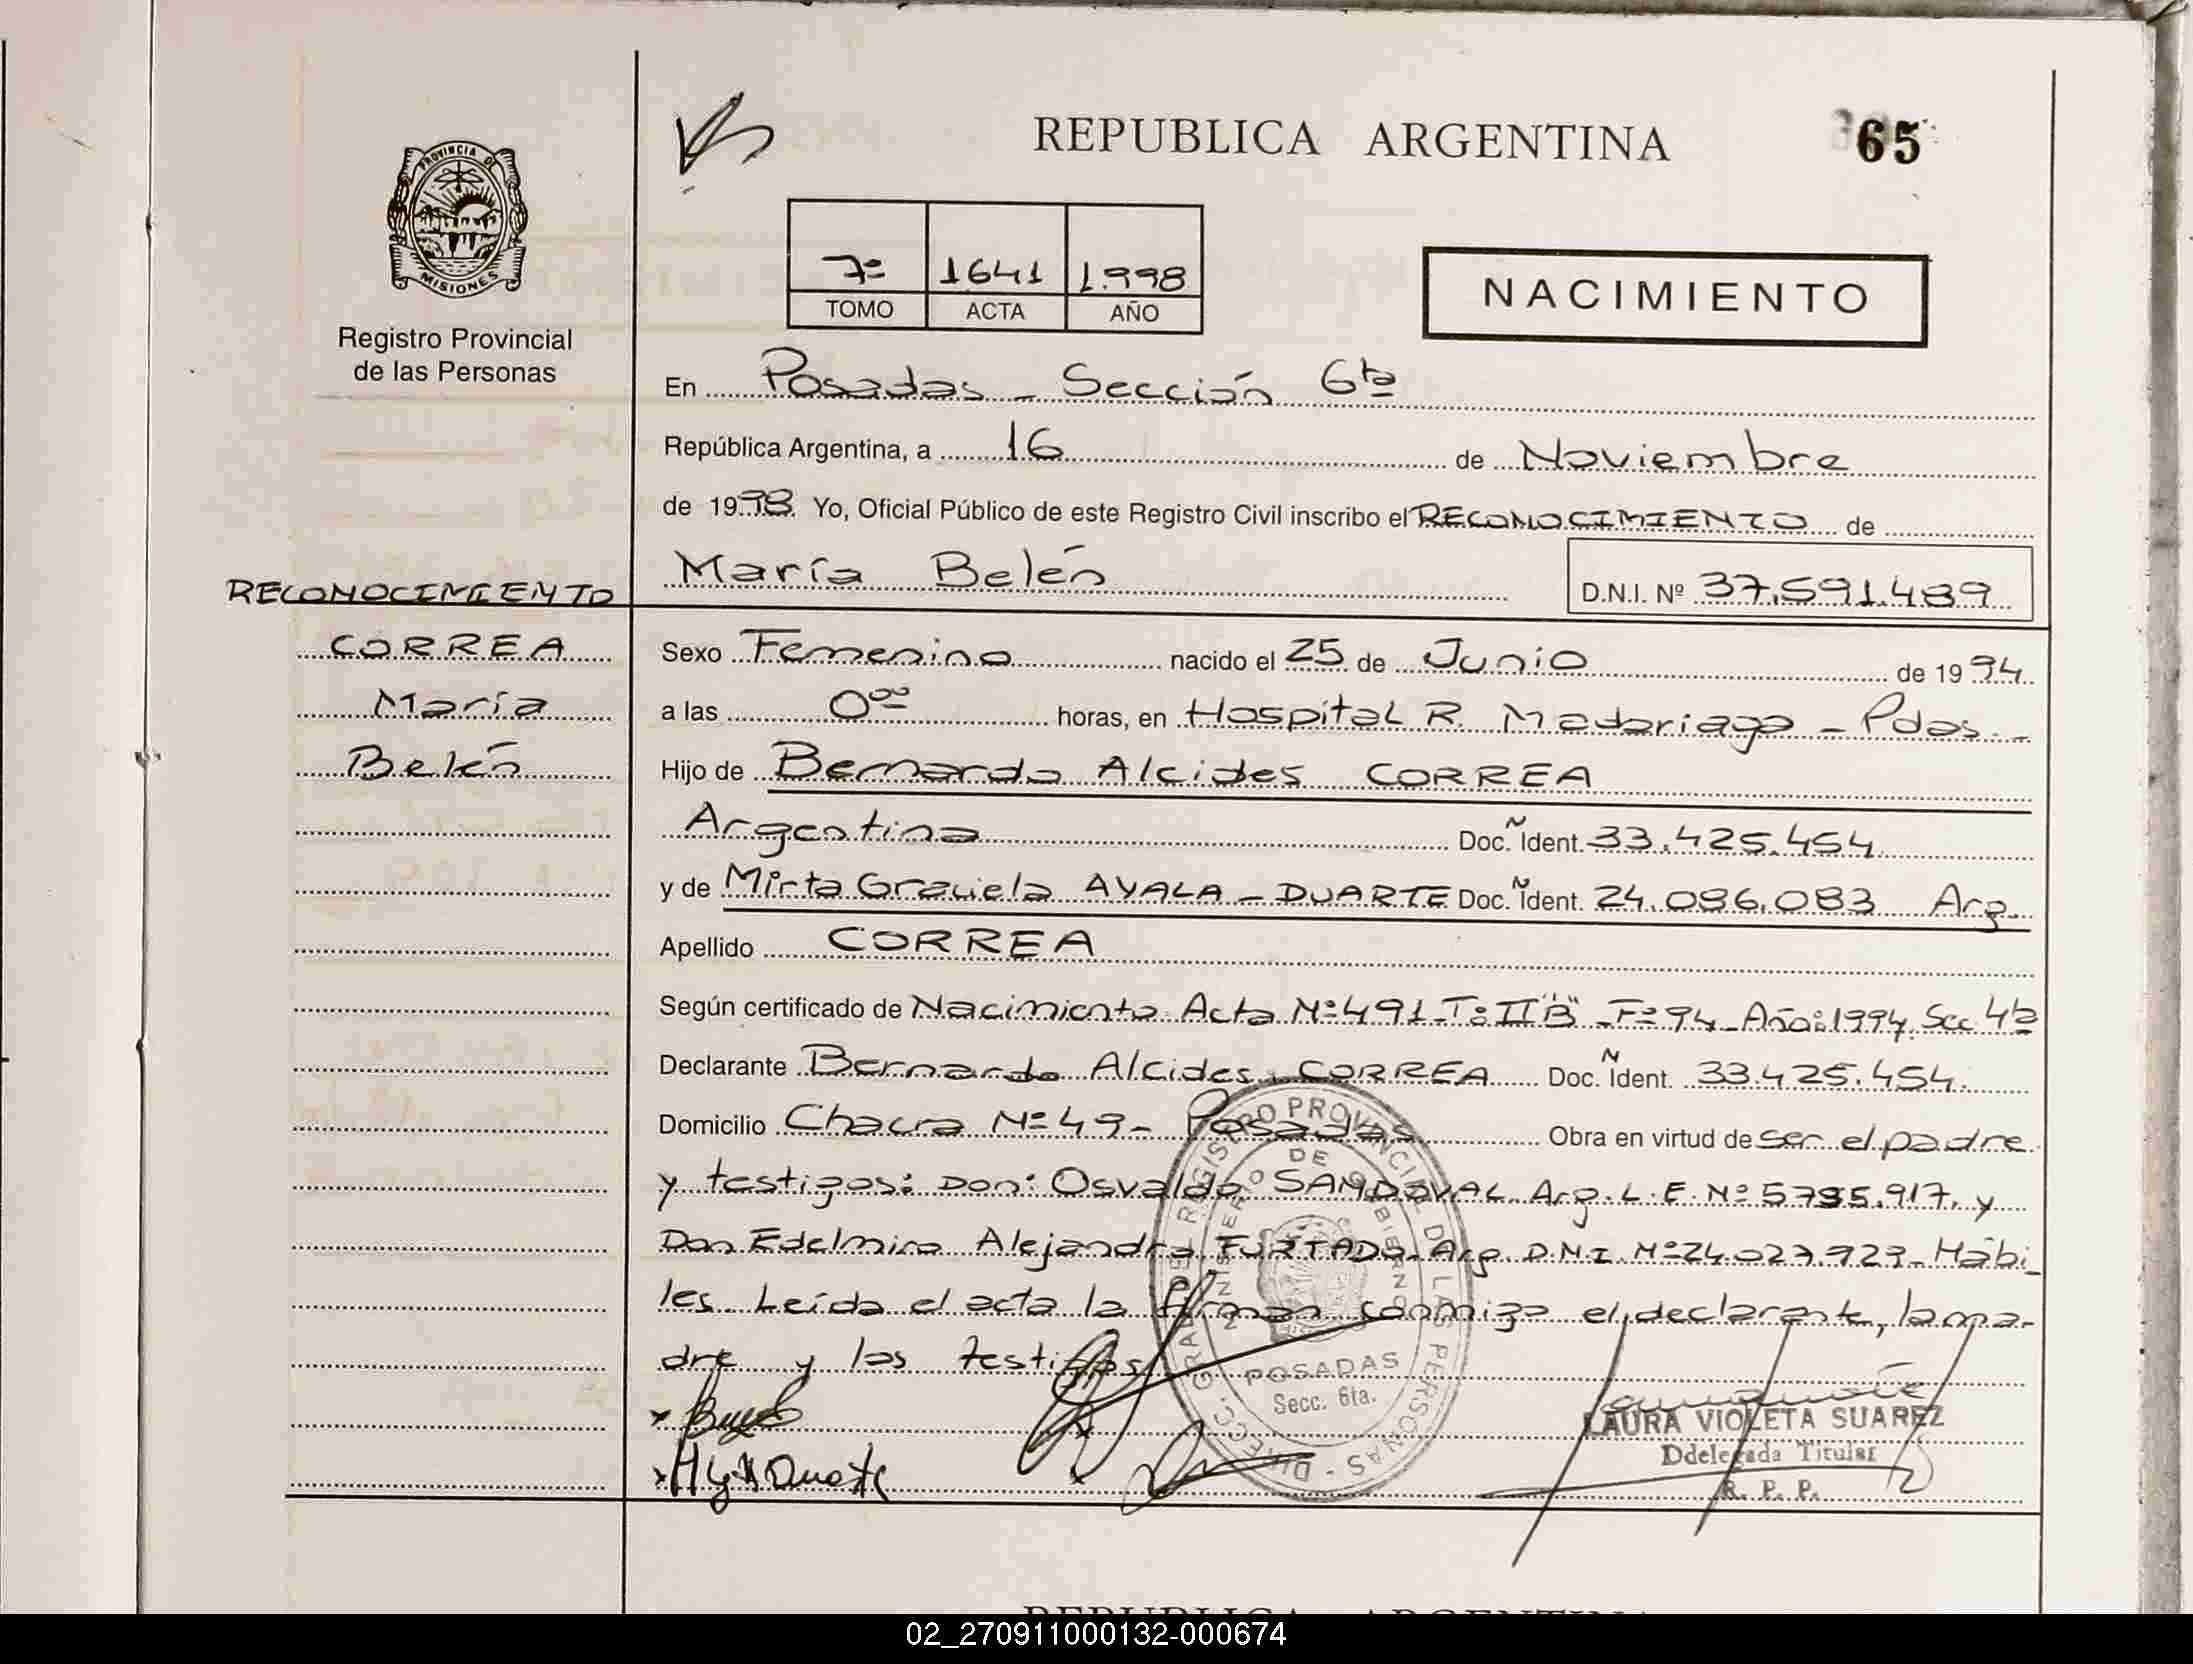 REPUBLICA ARGENTINA
65
PROVINCIA DE
MISIONES
Registro Provincial
de las Personas
7º 1641 1.998
TOMO ACTA AÑO
NACIMIENTO
En Posadas - Sección 6ta
República Argentina, a 16 de Noviembre
de 1998. Yo, Oficial Público de este Registro Civil inscribo el RECONOCIMIENTO de
María Belén D.N.I. Nº 37.591.489
RECONOCIMIENTO
CORREA
María
Belén
Sexo Femenino nacido el 25 de Junio de 1994
a las 0ºº horas, en Hospital R. Madariaga - Pdas.-
Hijo de Bernardo Alcides CORREA
Argentina Doc. Ñ Ident. 33.425.454
y de Mirta Graciela AYALA - DUARTE Doc. Ñ Ident. 24.086.083 Arg.
Apellido CORREA
Según certificado de Nacimiento Acta Nº 491-Tº II"B"-Fº 94-Año:1994. Sec 4ta
Declarante Bernardo Alcides CORREA Doc. Ñ Ident. 33.425.454.
Domicilio Chacra Nº 49- Posadas Obra en virtud de ser el padre
y testigos: Don: Osvaldo SANDOVAL Arg. L.E. Nº 5.795.917. y
Don Edelmiro Alejandro FURTADO- Arg. D.N.I. Nº 24.027.927- Hábi-
les. Leída el acta la firman conmigo el declarante, la ma-
dre y los testigos
DIRECC. GRAL. DEL REGISTRO PROVINCIAL DE LAS PERSONAS
MINISTERIO DE GOBIERNO
POSADAS
Secc. 6ta.
LAURA VIOLETA SUAREZ
Ddelegada Titular
R. P. P.
REPUBLICA ARGENTINA
02_270911000132-000674